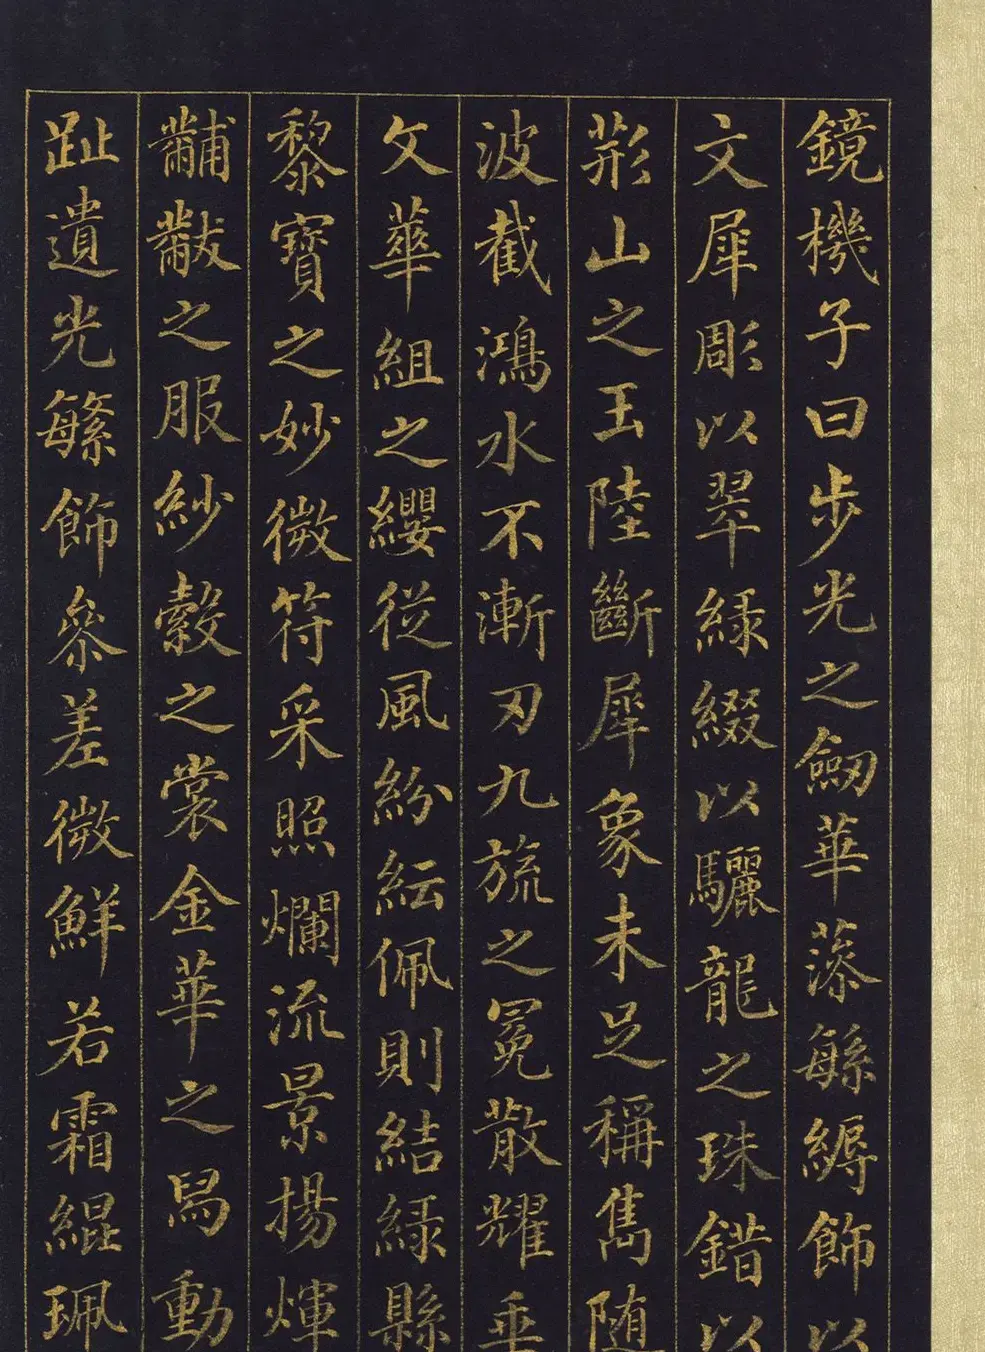 鏡機子曰步光之劒華藻緐縟飾以
文犀彫以翠緑綴以驪龍之珠錯以
荊山之玉陸斷犀象未足稱雋随
波截鴻水不漸刃九旒之冕散耀垂
文華組之纓從風紛紜佩則結緑縣
黎寶之妙微符采照爛流景揚煇
黼黻之服紗縠之裳金華之舄動
趾遺光繁飾參差微鮮若霜緄珮